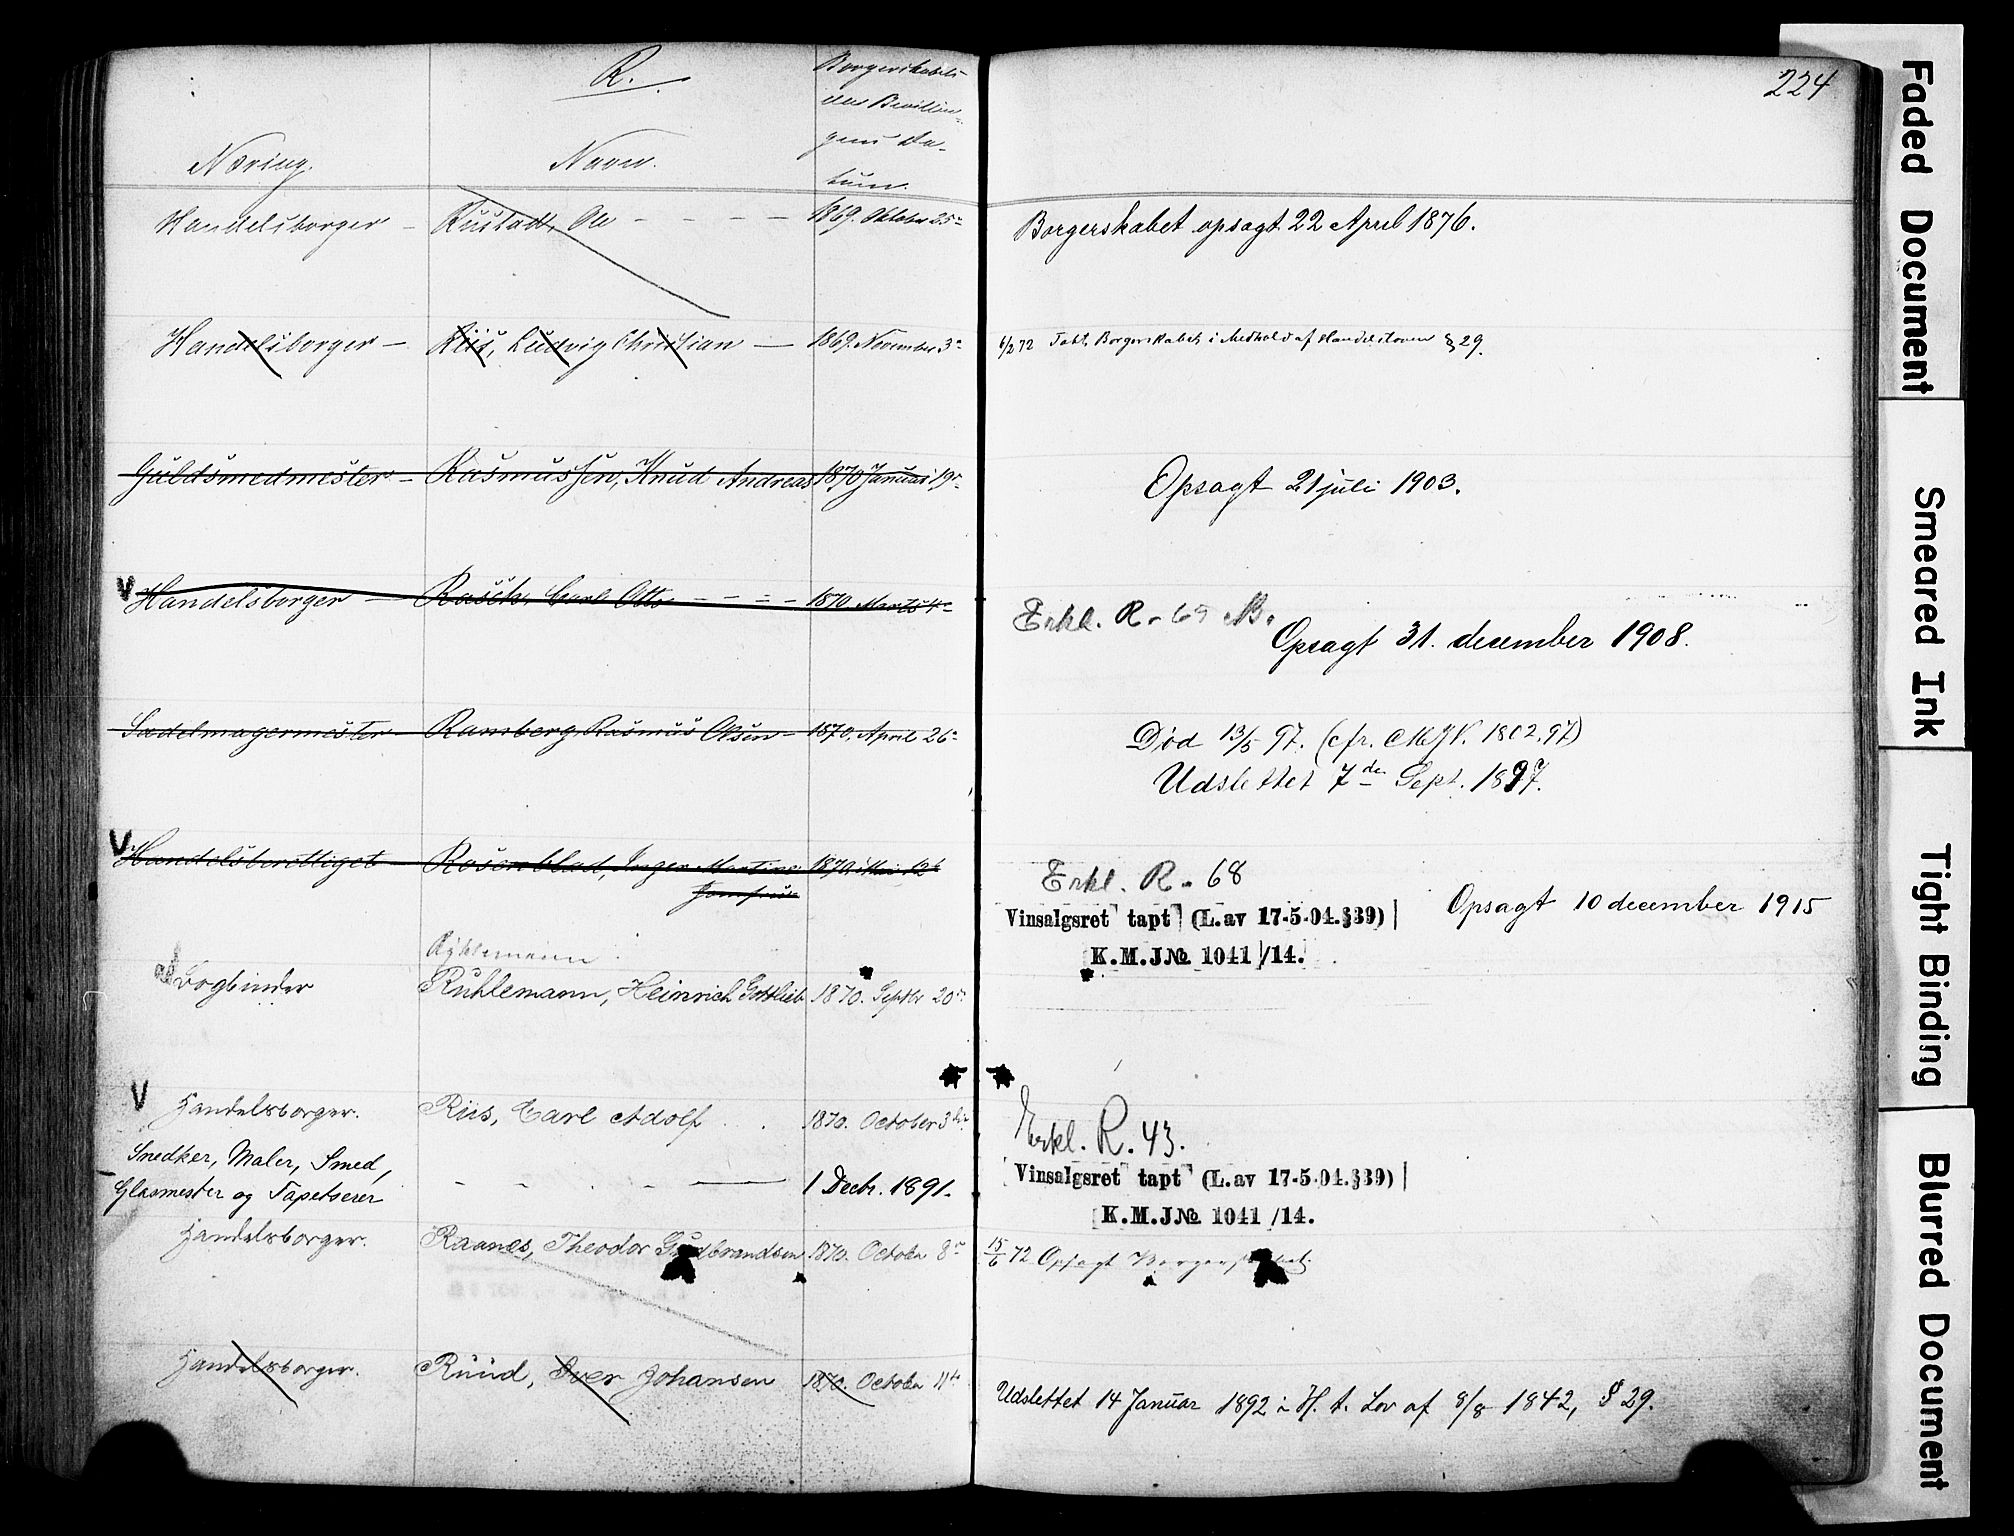 R.
224
Næring.
Navn.
Borgerskabets
eller Bevillin-
gens Da-
tum.
Handelsborger - Rustad, Ole - - - - 1869. Oktober 25
Borgerskabet opsagt 22 April 1876.
Handelsborger - Riis, Ludvig Christian - 1869. November 3
6/2 72 Tabt Borgerskabet i Medhold af Handelsloven § 29.
Guldsmedmester - Rasmussen, Knud Andreas 1870 Januar 19
Opsagt 21 juli 1903.
V Handelsborger - Rasch, Carl Otto - - - - 1870. Marts 4
Erkl. R. 69
Opsagt 31. december 1908.
Sadelmagermester - Ramberg, Rasmus Olsen - 1870. April 26
Død 13/5 97. (cfr. 1802.97)
Udslettet 7de Sept. 1897.
V Handelsberettiget - Rosenblad, Inger Martine 1870. Mai 12
Erkl. R. 68
Vinsalgsret tapt (L.av 17-5-04.§39)
Opsagt 10 december 1915
K.M.J№ 1041/14.
Bogbinder Ruhlemann, Heinrich Gottlieb 1870. Septbr 20
V Handelsborger. Riis, Carl Adolf . . 1870. October 3
Erkl. R. 43.
Snedker, Maler, Smed,
Glasmester og Tapetserer - - - - 1 Decbr. 1891.
Vinsalgsret tapt (L.av 17-5-04.§39)
K.M.J№ 1041/14.
Handelsborger. Raanes, Theodor Gudbrandsen 1870. October 8
15/6 72 Opsagt Borgerskabet.
Handelsborger. Ruud, Iver Johansen 1870. October 11
Udslettet 14 Januar 1892 i H. t. Lov af 8/8 1842, § 29.
Faded Document
Smeared Ink
Tight Binding
Blurred Document